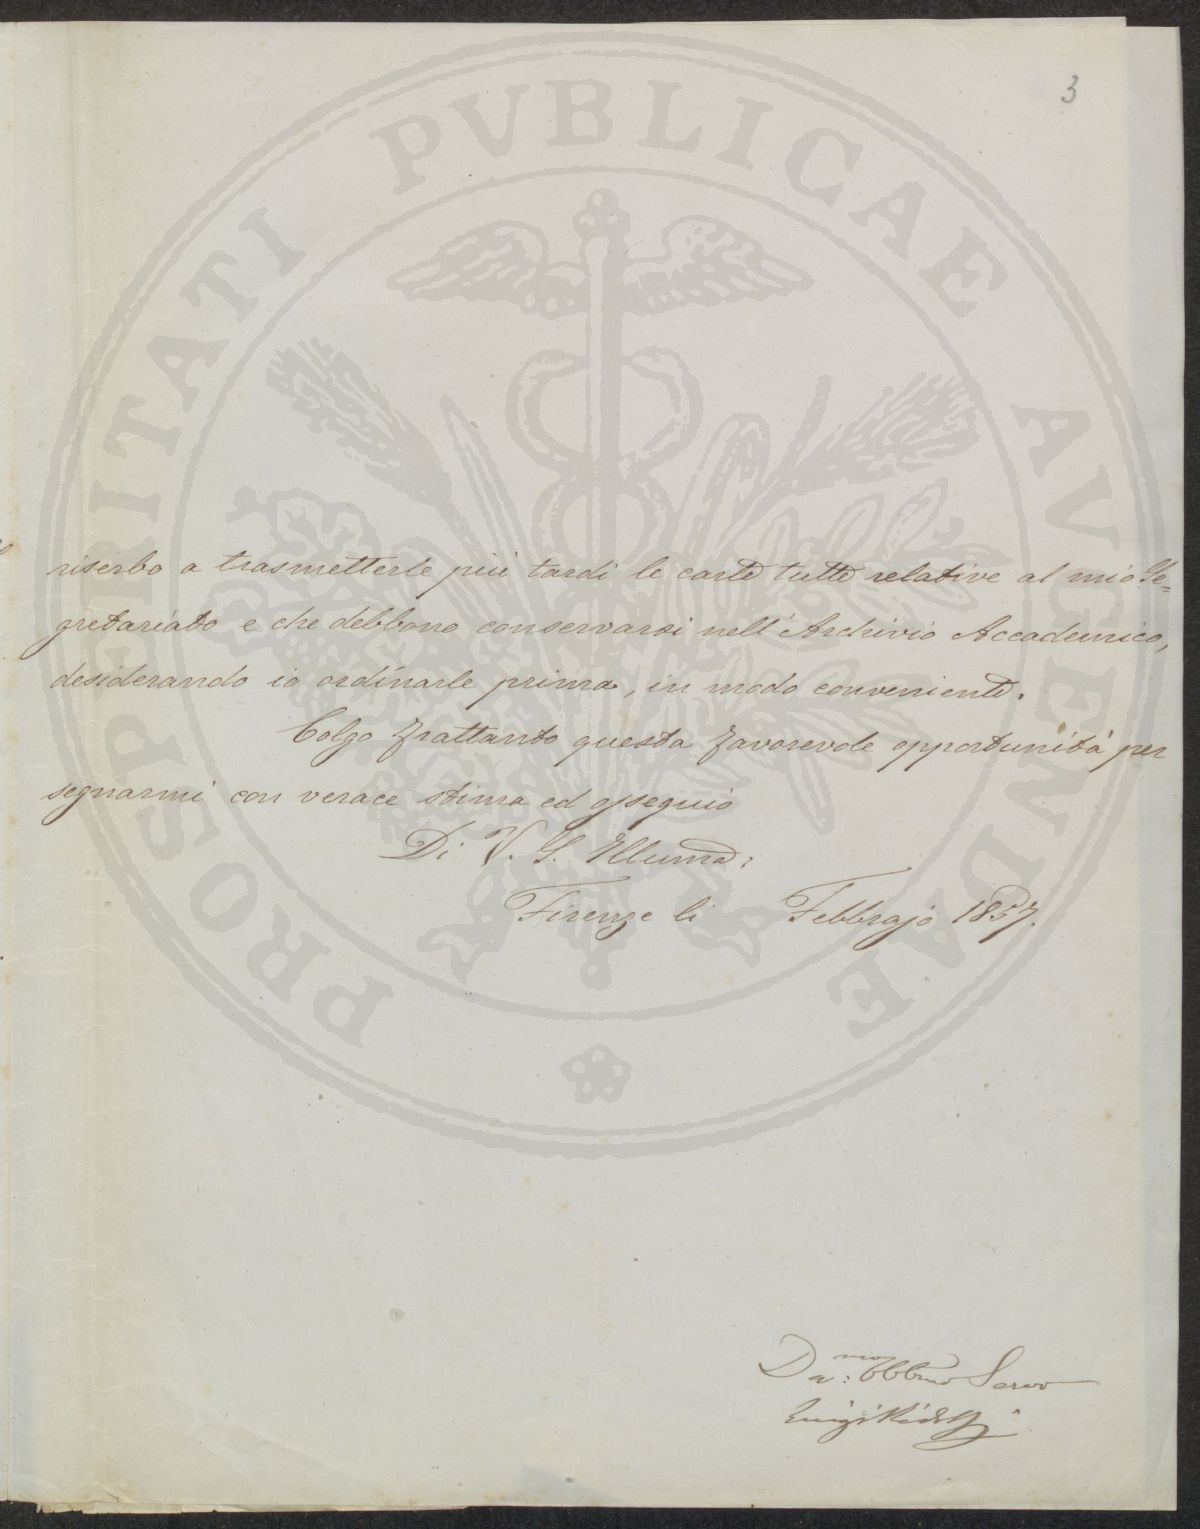 3
PROSPERITATI PVBLICAE AVGENDAE
riserbo a trasmetterle più tardi le carte tutte relative al mio Se=
gretariato e che debbono conservarsi nell'Archivio Accademico,
desiderando io ordinarle prima, in modo conveniente.
Colgo frattanto questa favorevole opportunità per
segnarmi con verace stima ed ossequio
Di V. S. Illuma:
Firenze li Febbrajo 1857.
Da:mo Obbmo Servo
Luigi Ridolfi